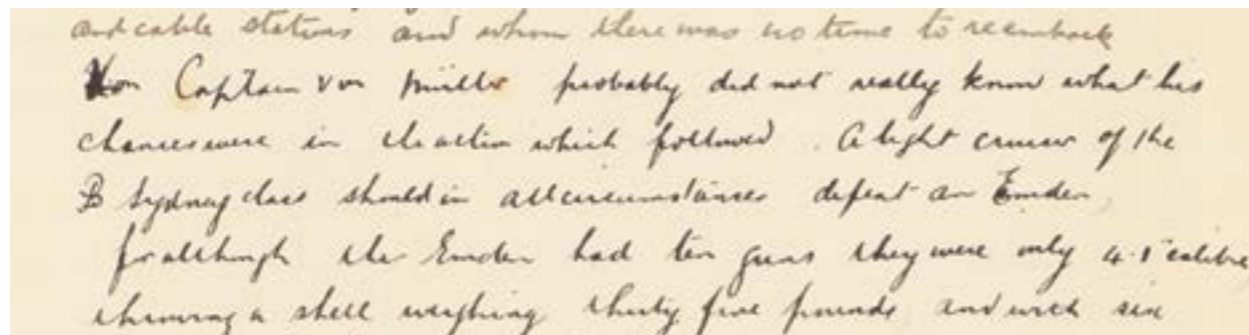 and cable stations and whom there was no time to reembark
Captain von Müller probably did not really know what his
chances were in the action which followed. A light cruiser of the
Sydney class should in all circumstances defeat an Emden,
for although the Emden had ten guns they were only 4.1" calibre
throwing a shell weighing thirty five pounds and with six